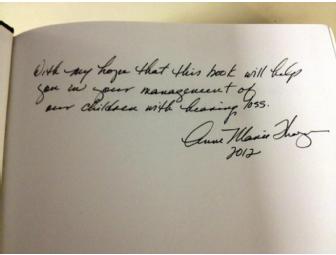 With my hope that this book will help
you in your management of
our children with hearing loss.
Anne Marie
2012